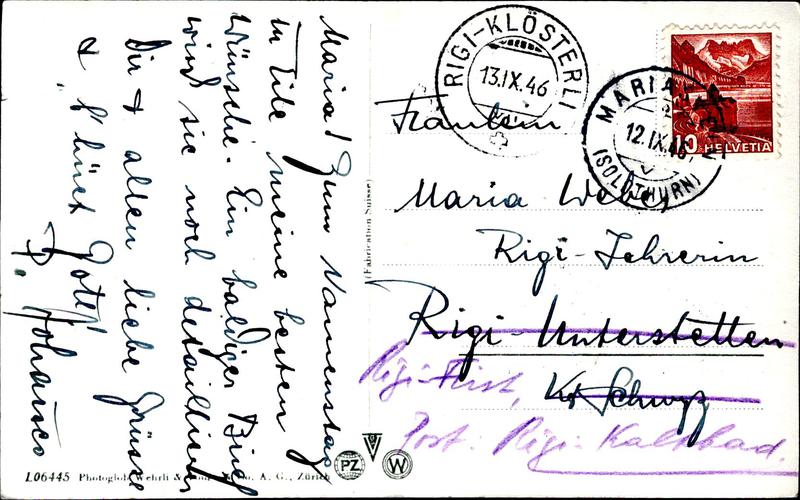 Maria! Zum Namenstag
in Eile meine besten
Wünsche. Ein baldiger Brief
wird sie noch detaillieren
Dir & allen liebe Grüsse
& b'hüet Gott!
P. Johannes
L06445 Photoglob-Wehrli & A. G., Zürich
PZ
W
(Fabrication Suisse)
RIGI-KLÖSTERLI
13.IX.46
MARIA
12.IX.46
(SOLOTHURN)
10 HELVETIA
Fräulein
Maria Weber
Rigi-Lehrerin
Rigi-Unterstetten
Kt Schwyz
Rigi-First,
Post: Rigi-Kaltbad.